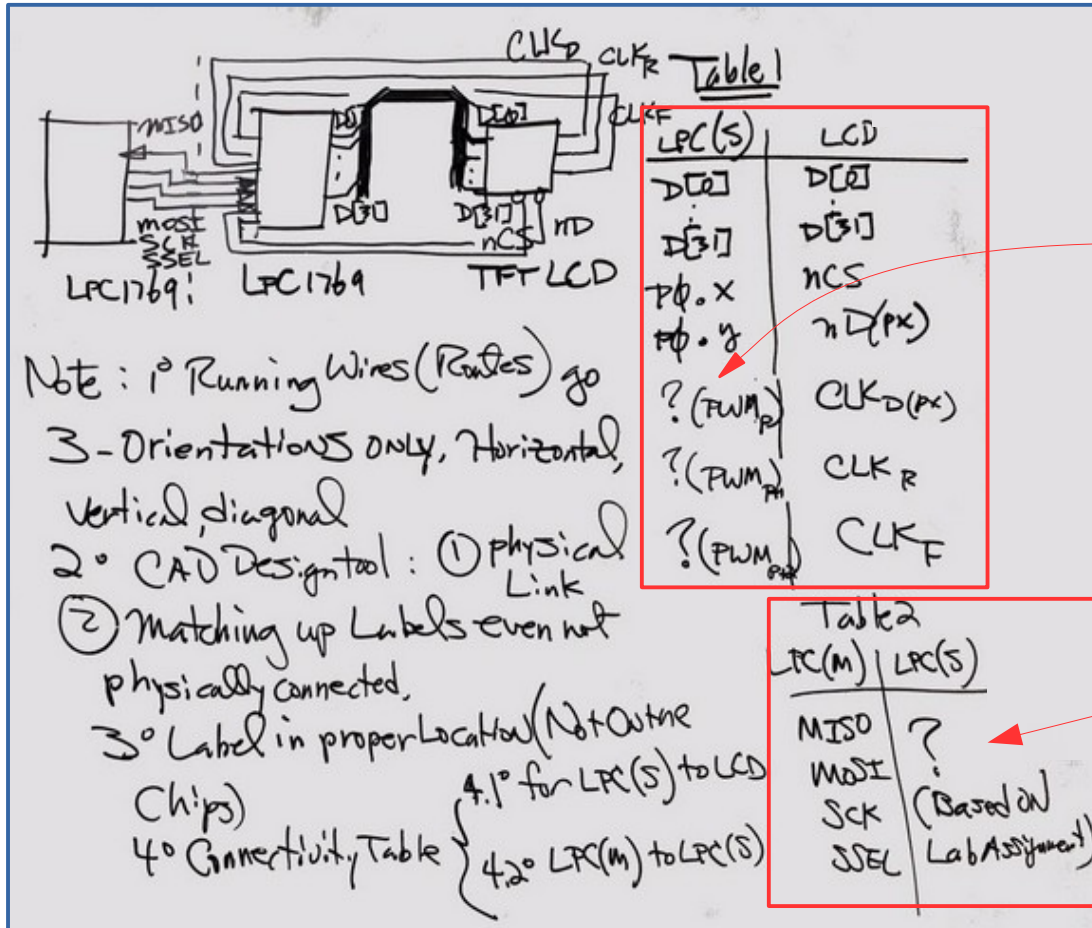 CLK_D CLK_R
Table 1
MISO
D[0] D[0]
CLK_F
MOSI
SCK
SSEL
D[31] D[31]
nCS nD
LPC1769 LPC1769 TFT LCD
LPC(S) LCD
D[0] D[0]
D[31] D[31]
P0.x nCS
P0.y nD(PX)
?(PWM ) CLK_D(PX)
?(PWM ) CLK_R
?(PWM ) CLK_F
Note: 1° Running Wires (Routes) go
3-Orientations ONLY, Horizontal,
Vertical, diagonal
2° CAD Design tool: ① physical
Link
② Matching up Labels even not
physically connected,
3° Label in proper Location (Not
Chips)
4° Connectivity Table
4.1° for LPC(S) to LCD
4.2° LPC(M) to LPC(S)
Table 2
LPC(M) LPC(S)
MISO ?
MOSI
SCK (Based ON
SSEL Lab Assignment)